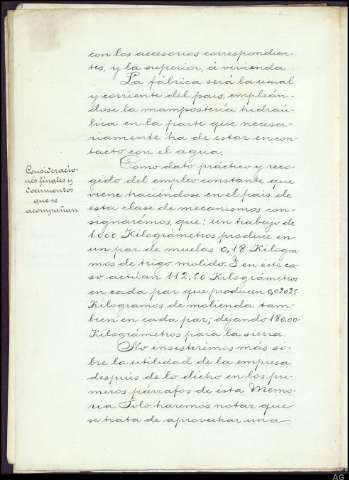 con los accesorios correspondien-
tes, y la superior, á vivienda
La fábrica será la usual
y corriente del pais, empleán-
dose la mampostería hidraú-
lica en la parte que necesa-
riamente ha de estar en con-
tacto con el agua;
Consideracio-
nes finales y
documentos
que se
acompañan
Como dato práctico y reco-
gido del empleo constante que
viene haciéndose en el pais de
esta clase de mecanismos con-
signarémos que; un trabajo de
1.000 Kilográmetros produce en
un par de muelas 0,18 Kilogra-
mos de trigo molido. Y en este ca-
so actúan 112.50 Kilográmetros
en cada par que producen 0,02025
Kilogramos de molienda tam-
bien en cada par; dejando 180.00
Kilográmetros para la sierra
No insistirémos más so-
bre la utilidad de la empresa
después de lo dicho en los pri-
meros párrafos de esta Memo-
ria Solo harémos notar que
se trata de aprovechar una
AG